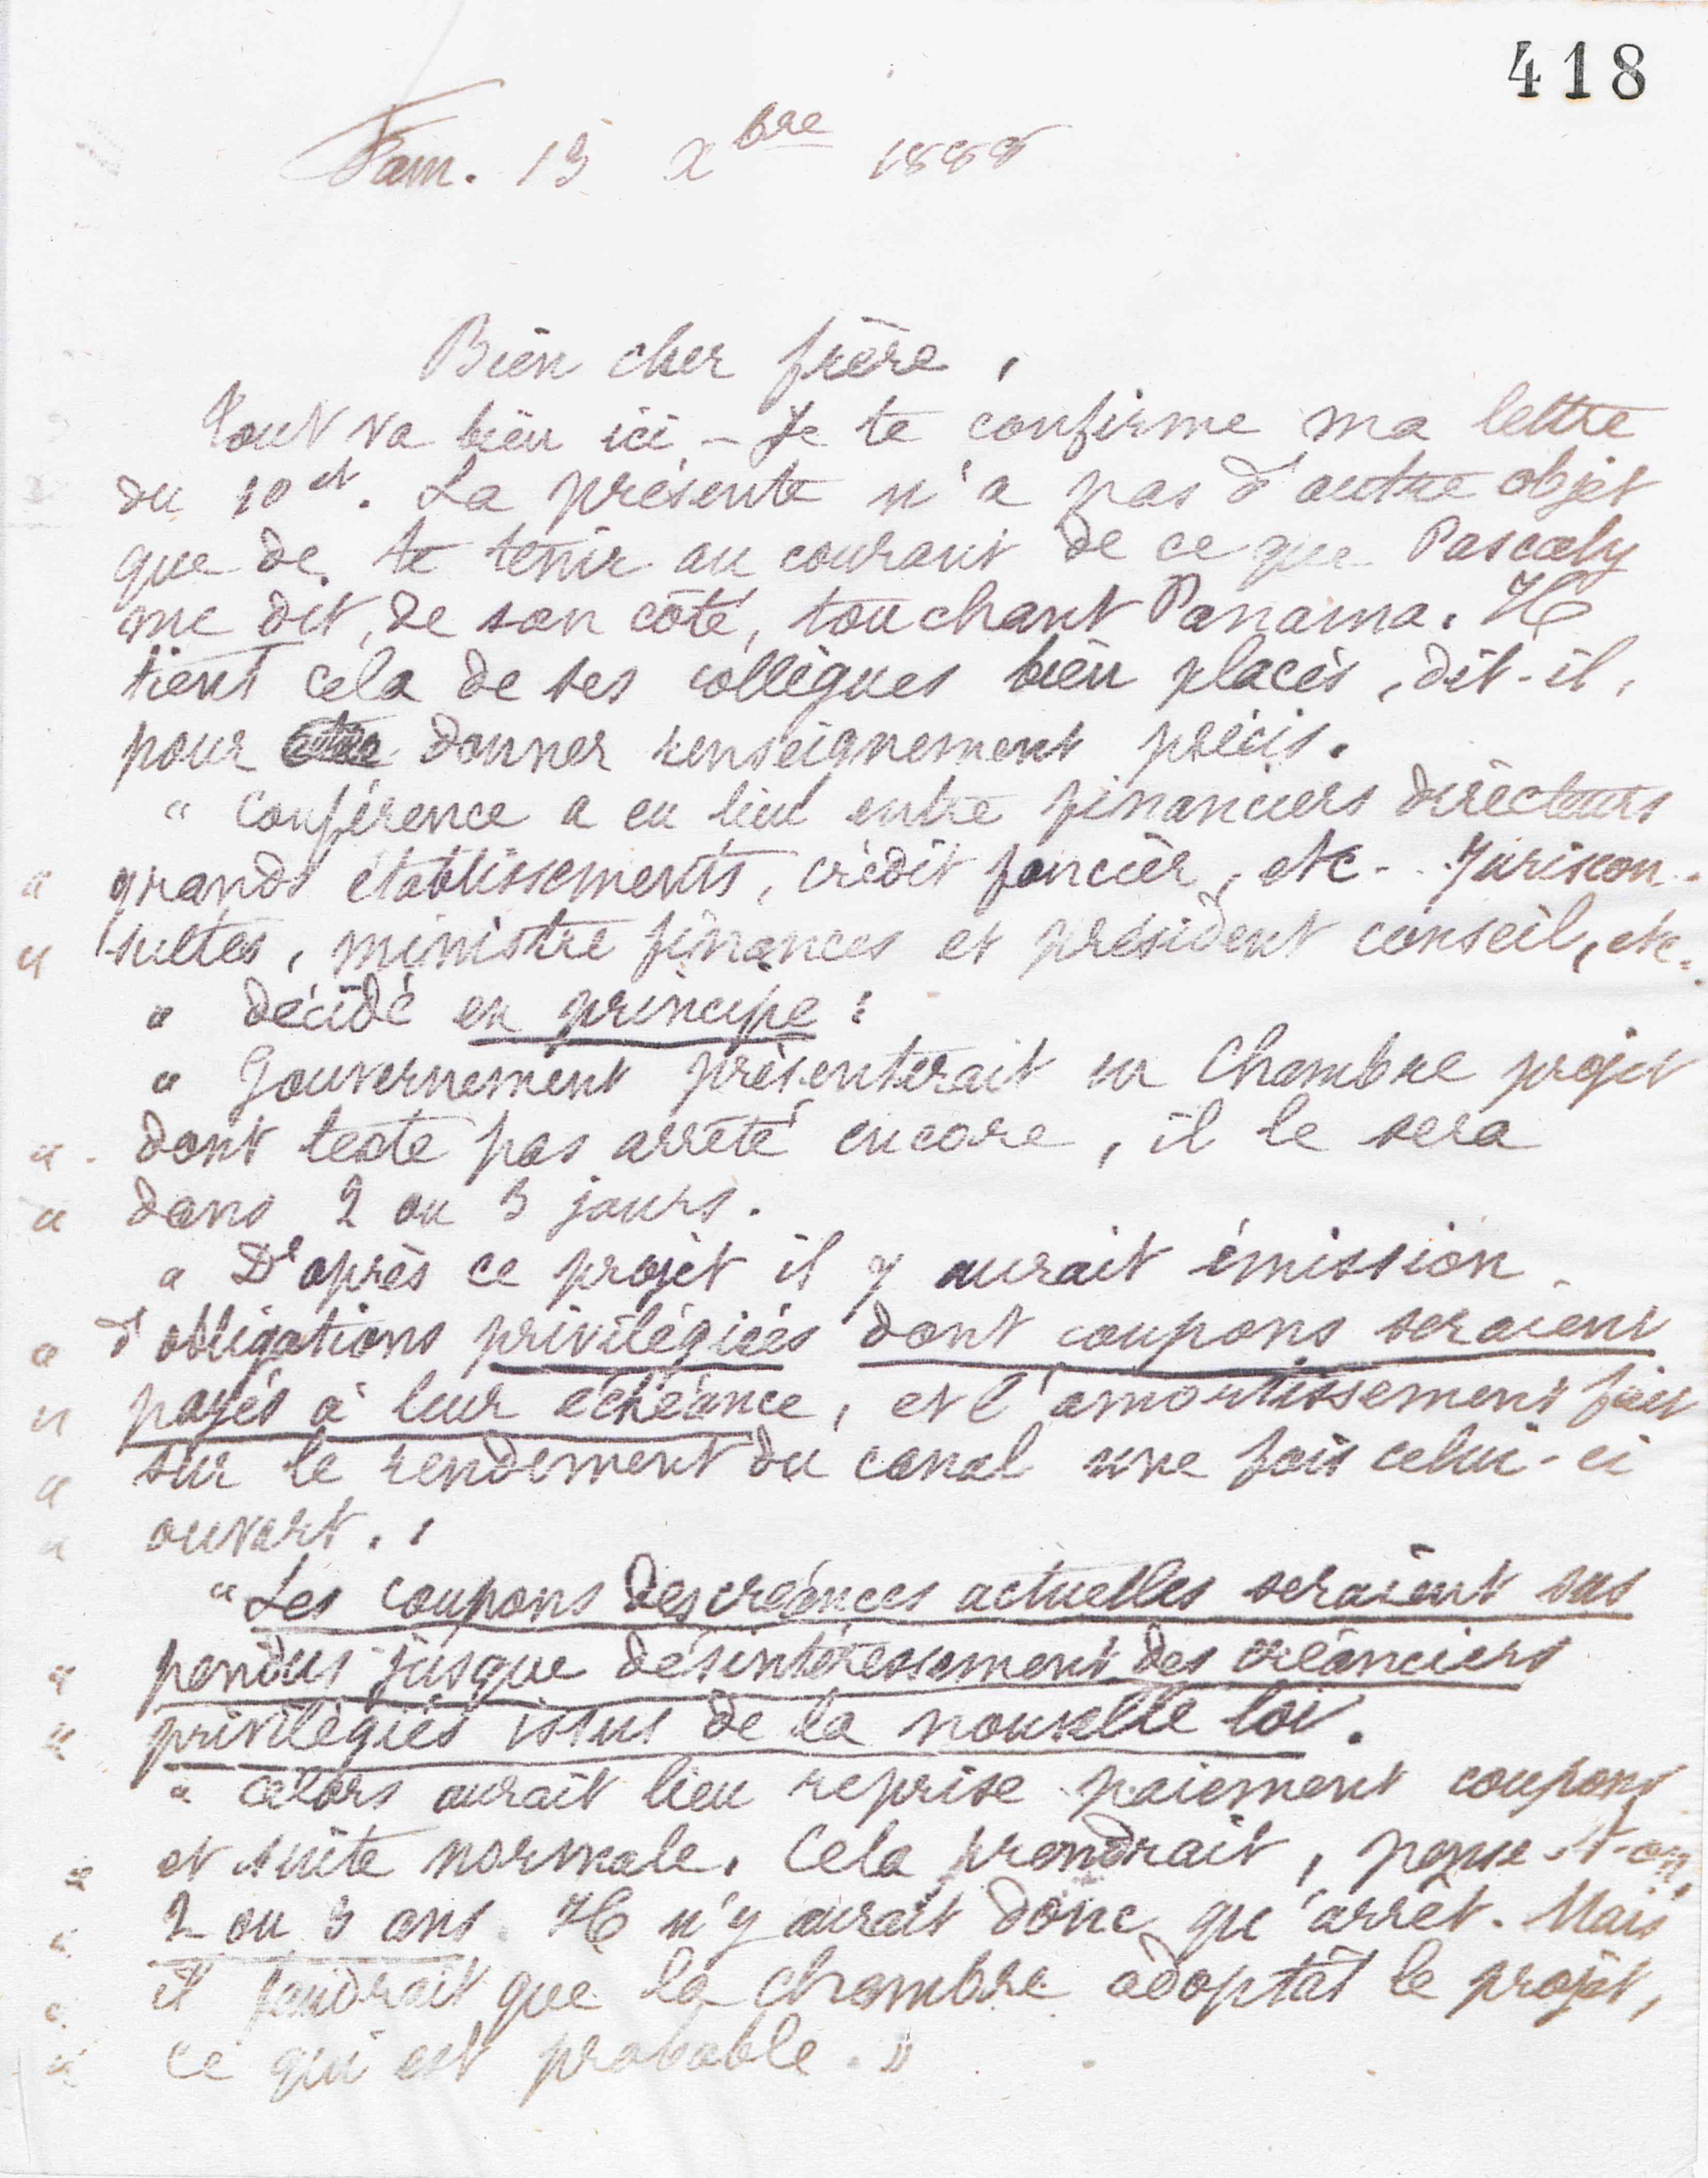 418
Fam. 13 Xbre 1888
Bien cher frère,
Tout va bien ici. – Je te confirme ma lettre
du 10 ct. La présente n'a pas d'autre objet
que de te tenir au courant de ce que Pascaly
me dit, de son côté, touchant Panama. Il
tient cela de ses collègues bien placés, dit-il,
pour donner renseignement précis.
" Conférence a eu lieu entre financiers directeurs
" grands établissements, crédit foncier, etc.. Juriscon-
" sultes, ministre finances et président conseil, etc.
" décidé en principe :
" Gouvernement présenterait sur Chambre projet
" dont texte pas arrêté encore, il le sera
" dans 2 ou 3 jours.
" D'après ce projet il y aurait émission
" d'obligations privilégiées dont coupons seraient
" payés à leur échéance, et l'amortissement fait
" sur le rendement du canal une fois celui-ci
" ouvert..
" Les coupons des créances actuelles seraient sus
" pendus jusque désintéressement des créanciers
" privilégiés issus de la nouvelle loi.
" alors aurait lieu reprise paiement coupons
" et suite normale. Cela prendrait, pense-t-on,
" 2 ou 3 ans. Il n'y aurait donc qu'arrêt. Mais
" il faudrait que la Chambre adoptât le projet,
" ce qui est probable. "